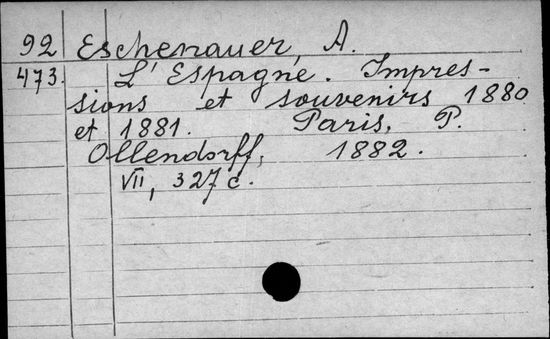 92 Eschenauer, A.
473. L'Espagne. Impres-
sions et souvenirs 1880
et 1881. Paris, P.
Ollendorff, 1882.
VII, 327 c.